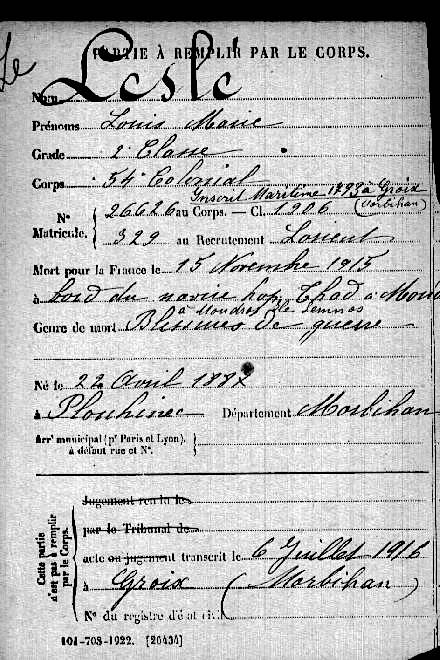 Le
PARTIE À REMPLIR PAR LE CORPS.
Nom Leslé
Prénoms Louis Marie
Grade 2e Classe
Corps 54e Colonial
Inscrit Maritime 1793 à Groix
(Morbihan)
N° Matricule. 26626 au Corps. — Cl. 1906
329 au Recrutement Lorient
Mort pour la France le 15 Novembre 1915
à bord du navire hop. Tchad à Moud
à Moudros île Lemnos
Genre de mort Blessures de guerre
Né le 22 Avril 1887
à Plouhinec Département Morbihan
Arrt municipal (pr Paris et Lyon),
à défaut rue et N°.
Cette partie n'est pas à remplir par le Corps.
Jugement rendu le
par le Tribunal de
acte ou jugement transcrit le 6 Juillet 1916
à Groix (Morbihan)
N° du registre d'état civil
101-708-1922. [26434]